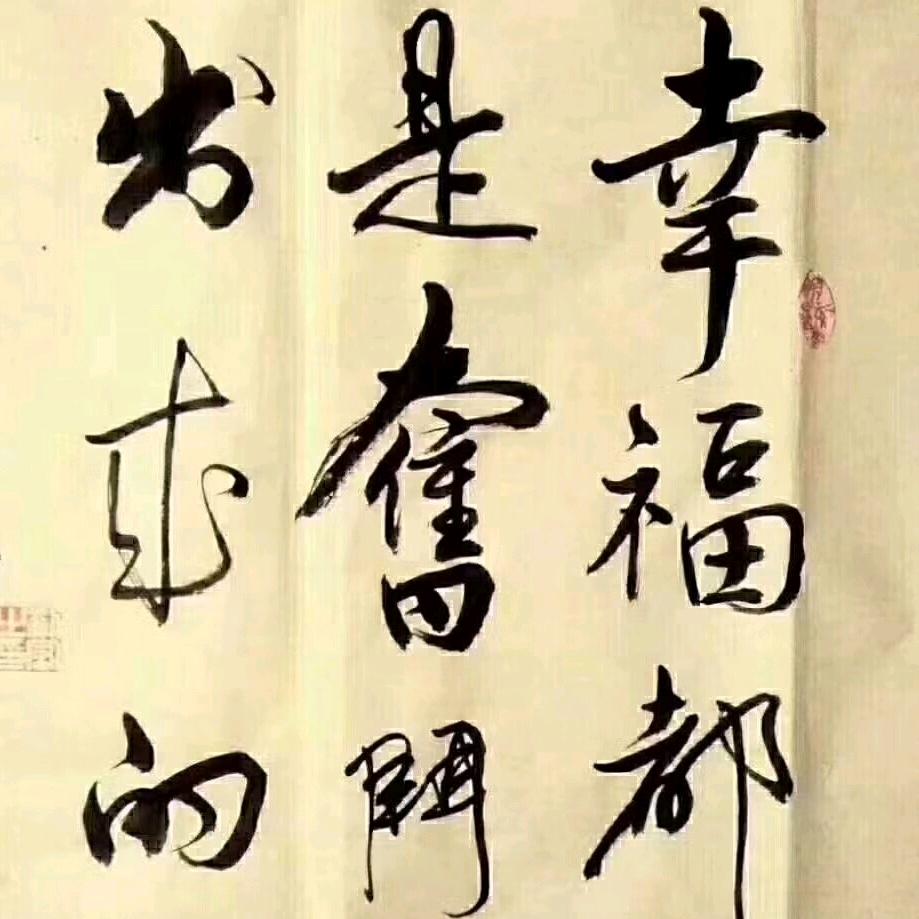 幸福都
是奮鬥
出來的